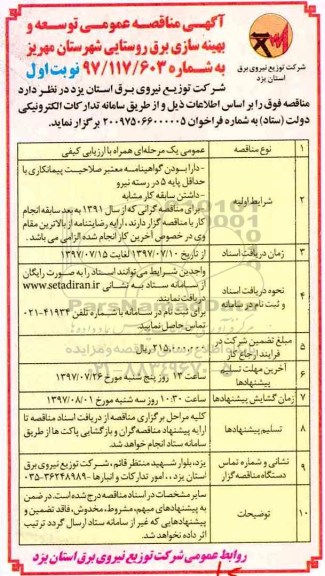 آگهی مناقصه عمومی توسعه و
بهینه سازی برق روستایی شهرستان مهریز
به شماره ۹۷/۱۱۷/۶۰۳ نوبت اول
شرکت توزیع نیروی برق
استان یزد
شرکت توزیع نیروی برق استان یزد در نظر دارد
مناقصه فوق را بر اساس اطلاعات ذیل و از طریق سامانه تدارکات الکترونیکی
دولت (ستاد) به شماره فراخوان ۲۰۰۹۷۵۰۶۶۰۰۰۰۰۵ برگزار نماید.
۱ نوع مناقصه عمومی یک مرحله‌ای همراه با ارزیابی کیفی
۲ شرایط اولیه
-دارا بودن گواهینامه معتبر صلاحیت پیمانکاری با
حداقل پایه ۵ در رسته نیرو
-داشتن سابقه کار مشابه
-برای مناقصه گرانی که از سال ۱۳۹۱ به بعد سابقه انجام
کار با مناقصه گزار دارند، ارایه رضایتنامه از بالاترین مقام
وی در خصوص آخرین کار انجام شده الزامی می باشد.
۳ زمان دریافت اسناد از تاریخ ۱۳۹۷/۰۷/۱۰ لغایت ۱۳۹۷/۰۷/۱۵
۴ نحوه دریافت اسناد
و ثبت نام در سامانه
واجدین شرایط می‌توانند اسناد را به صورت رایگان
از سامانه ستاد به نشانی www.setadiran.ir
دریافت نمایند.
برای ثبت نام در سامانه با شماره تلفن ۴۱۹۳۴-۰۲۱
تماس حاصل نمایید
۵ مبلغ تضمین شرکت در
فرایند ارجاع کار
ریال
۶ آخرین مهلت تسلیم
پیشنهادها
ساعت ۱۳ روز پنج شنبه مورخ ۱۳۹۷/۰۷/۲۶
۷ زمان گشایش پیشنهادها ساعت ۱۰:۳۰ روز سه شنبه مورخ ۱۳۹۷/۰۸/۰۱
۸ تسلیم پیشنهادها
کلیه مراحل برگزاری مناقصه از دریافت اسناد مناقصه تا
ارایه پیشنهاد مناقصه‌گران و بازگشایی پاکت ها از طریق
سامانه ستاد انجام خواهد شد.
۹ نشانی و شماره تماس
دستگاه مناقصه‌گزار
یزد، بلوار شهید منتظر قائم، شرکت توزیع نیروی برق
استان یزد، امور تدارکات و انبارها ۳۶۲۴۸۹۸۹-۰۳۵
۱۰ توضیحات
سایر مشخصات در اسناد مناقصه درج شده است. در ضمن
به پیشنهادهای مبهم، مشروط، مخدوش، فاقد تضمین و
پیشنهادهایی که غیر از سامانه ستاد ارسال گردد ترتیب
اثر داده نخواهد شد.
روابط عمومی شرکت توزیع نیروی برق استان یزد